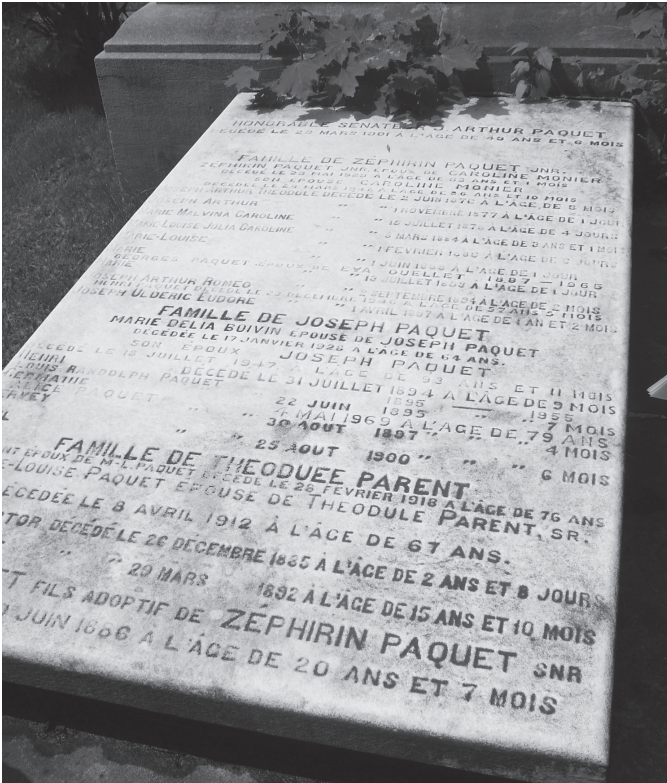 HONORABLE SENATEUR J. ARTHUR PAQUET
DÉCÉDÉ LE 29 MARS 1901 A L'ÂGE DE 43 ANS ET 6 MOIS
FAMILLE DE ZÉPHIRIN PAQUET JNR.
ZÉPHIRIN PAQUET JNR. EPOUX DE CAROLINE MONIER
SON EPOUSE CAROLINE MONIER
THEODULE DÉCÉDÉ LE 2 JUIN 1876 A L'ÂGE DE 5 MOIS
JOSEPH ARTHUR " " 1 NOVEMBRE 1877 À L'ÂGE DE 1 JOUR
MARIE MALVINA CAROLINE " " 15 JUILLET 1878 À L'ÂGE DE 4 JOURS
MARIE LOUISE-JULIA CAROLINE " " 8 MARS 1884 À L'ÂGE DE
MARIE-LOUISE " " 1 FEVRIER
MARIE " " 1 JUIN A L'ÂGE DE 1 JOUR
GEORGES PAQUET EPOUX DE EVA OUELLET 1887 1965
A L'ÂGE DE 1 JOUR
JOSEPH ARTHUR ROMEO " " SEPTEMBRE 1894 A L'ÂGE DE 2 MOIS
HENRI PAQUET DÉCÉDÉ LE
JOSEPH ULDERIC EUDORE " " 1 AVRIL 1897 A L'ÂGE DE 1 AN ET 2 MOIS
FAMILLE DE JOSEPH PAQUET
MARIE DELIA BOIVIN EPOUSE DE JOSEPH PAQUET
DÉCÉDÉE LE 17 JANVIER 1928 A L'ÂGE DE 64 ANS.
SON EPOUX JOSEPH PAQUET
DÉCÉDÉ LE 18 JUILLET 1947 A L'ÂGE DE 93 ANS ET 11 MOIS
HENRI DÉCÉDÉ LE 31 JUILLET 1894 A L'ÂGE DE 9 MOIS
LOUIS RANDOLPH PAQUET 1895 1955
STEPHANIE 22 JUIN 1895 " " 7 MOIS
ALICE PAQUET " 4 MAI 1969 A L'ÂGE DE 79 ANS
" " 30 AOUT 1897 " " " 4 MOIS
" " 25 AOUT 1900 " " " 6 MOIS
FAMILLE DE THEODULE PARENT
EPOUX DE M-L. PAQUET DÉCÉDÉ LE 28 FEVRIER 1918 A L'ÂGE DE 76 ANS
-LOUISE PAQUET EPOUSE DE THEODULE PARENT, SR.
DÉCÉDÉE LE 8 AVRIL 1912 À L'ÂGE DE 67 ANS.
TOR, DÉCÉDÉ LE 26 DÉCEMBRE 1885 À L'ÂGE DE 2 ANS ET 8 JOURS
" " " 29 MARS 1892 À L'ÂGE DE 15 ANS ET 10 MOIS
FILS ADOPTIF DE ZÉPHIRIN PAQUET SNR
JUIN 1886 A L'ÂGE DE 20 ANS ET 7 MOIS